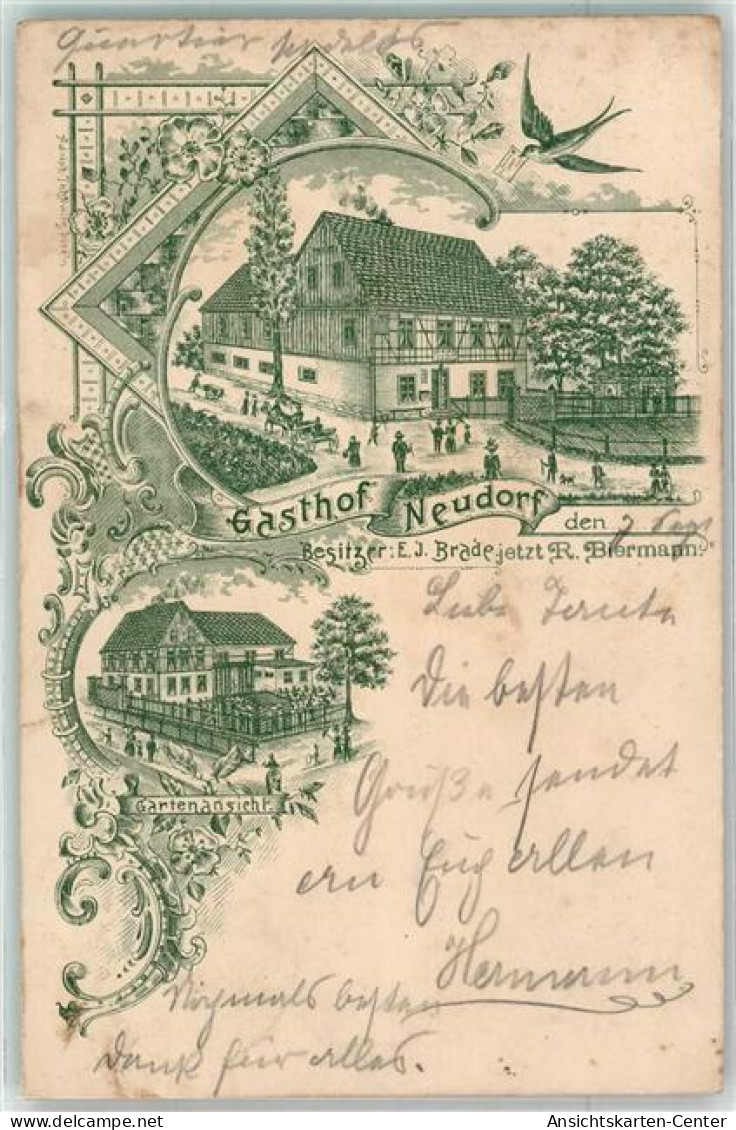 Quartier
Gasthof Neudorf
den 7 Sept
Besitzer: E. J. Brade jetzt R. Biermann.
Liebe Tante
Die besten
Grüße sendet
an Euch allen
Hermann
Gartenansicht.
Nochmals besten
Dank für alles.
Ansichtskarten-Center